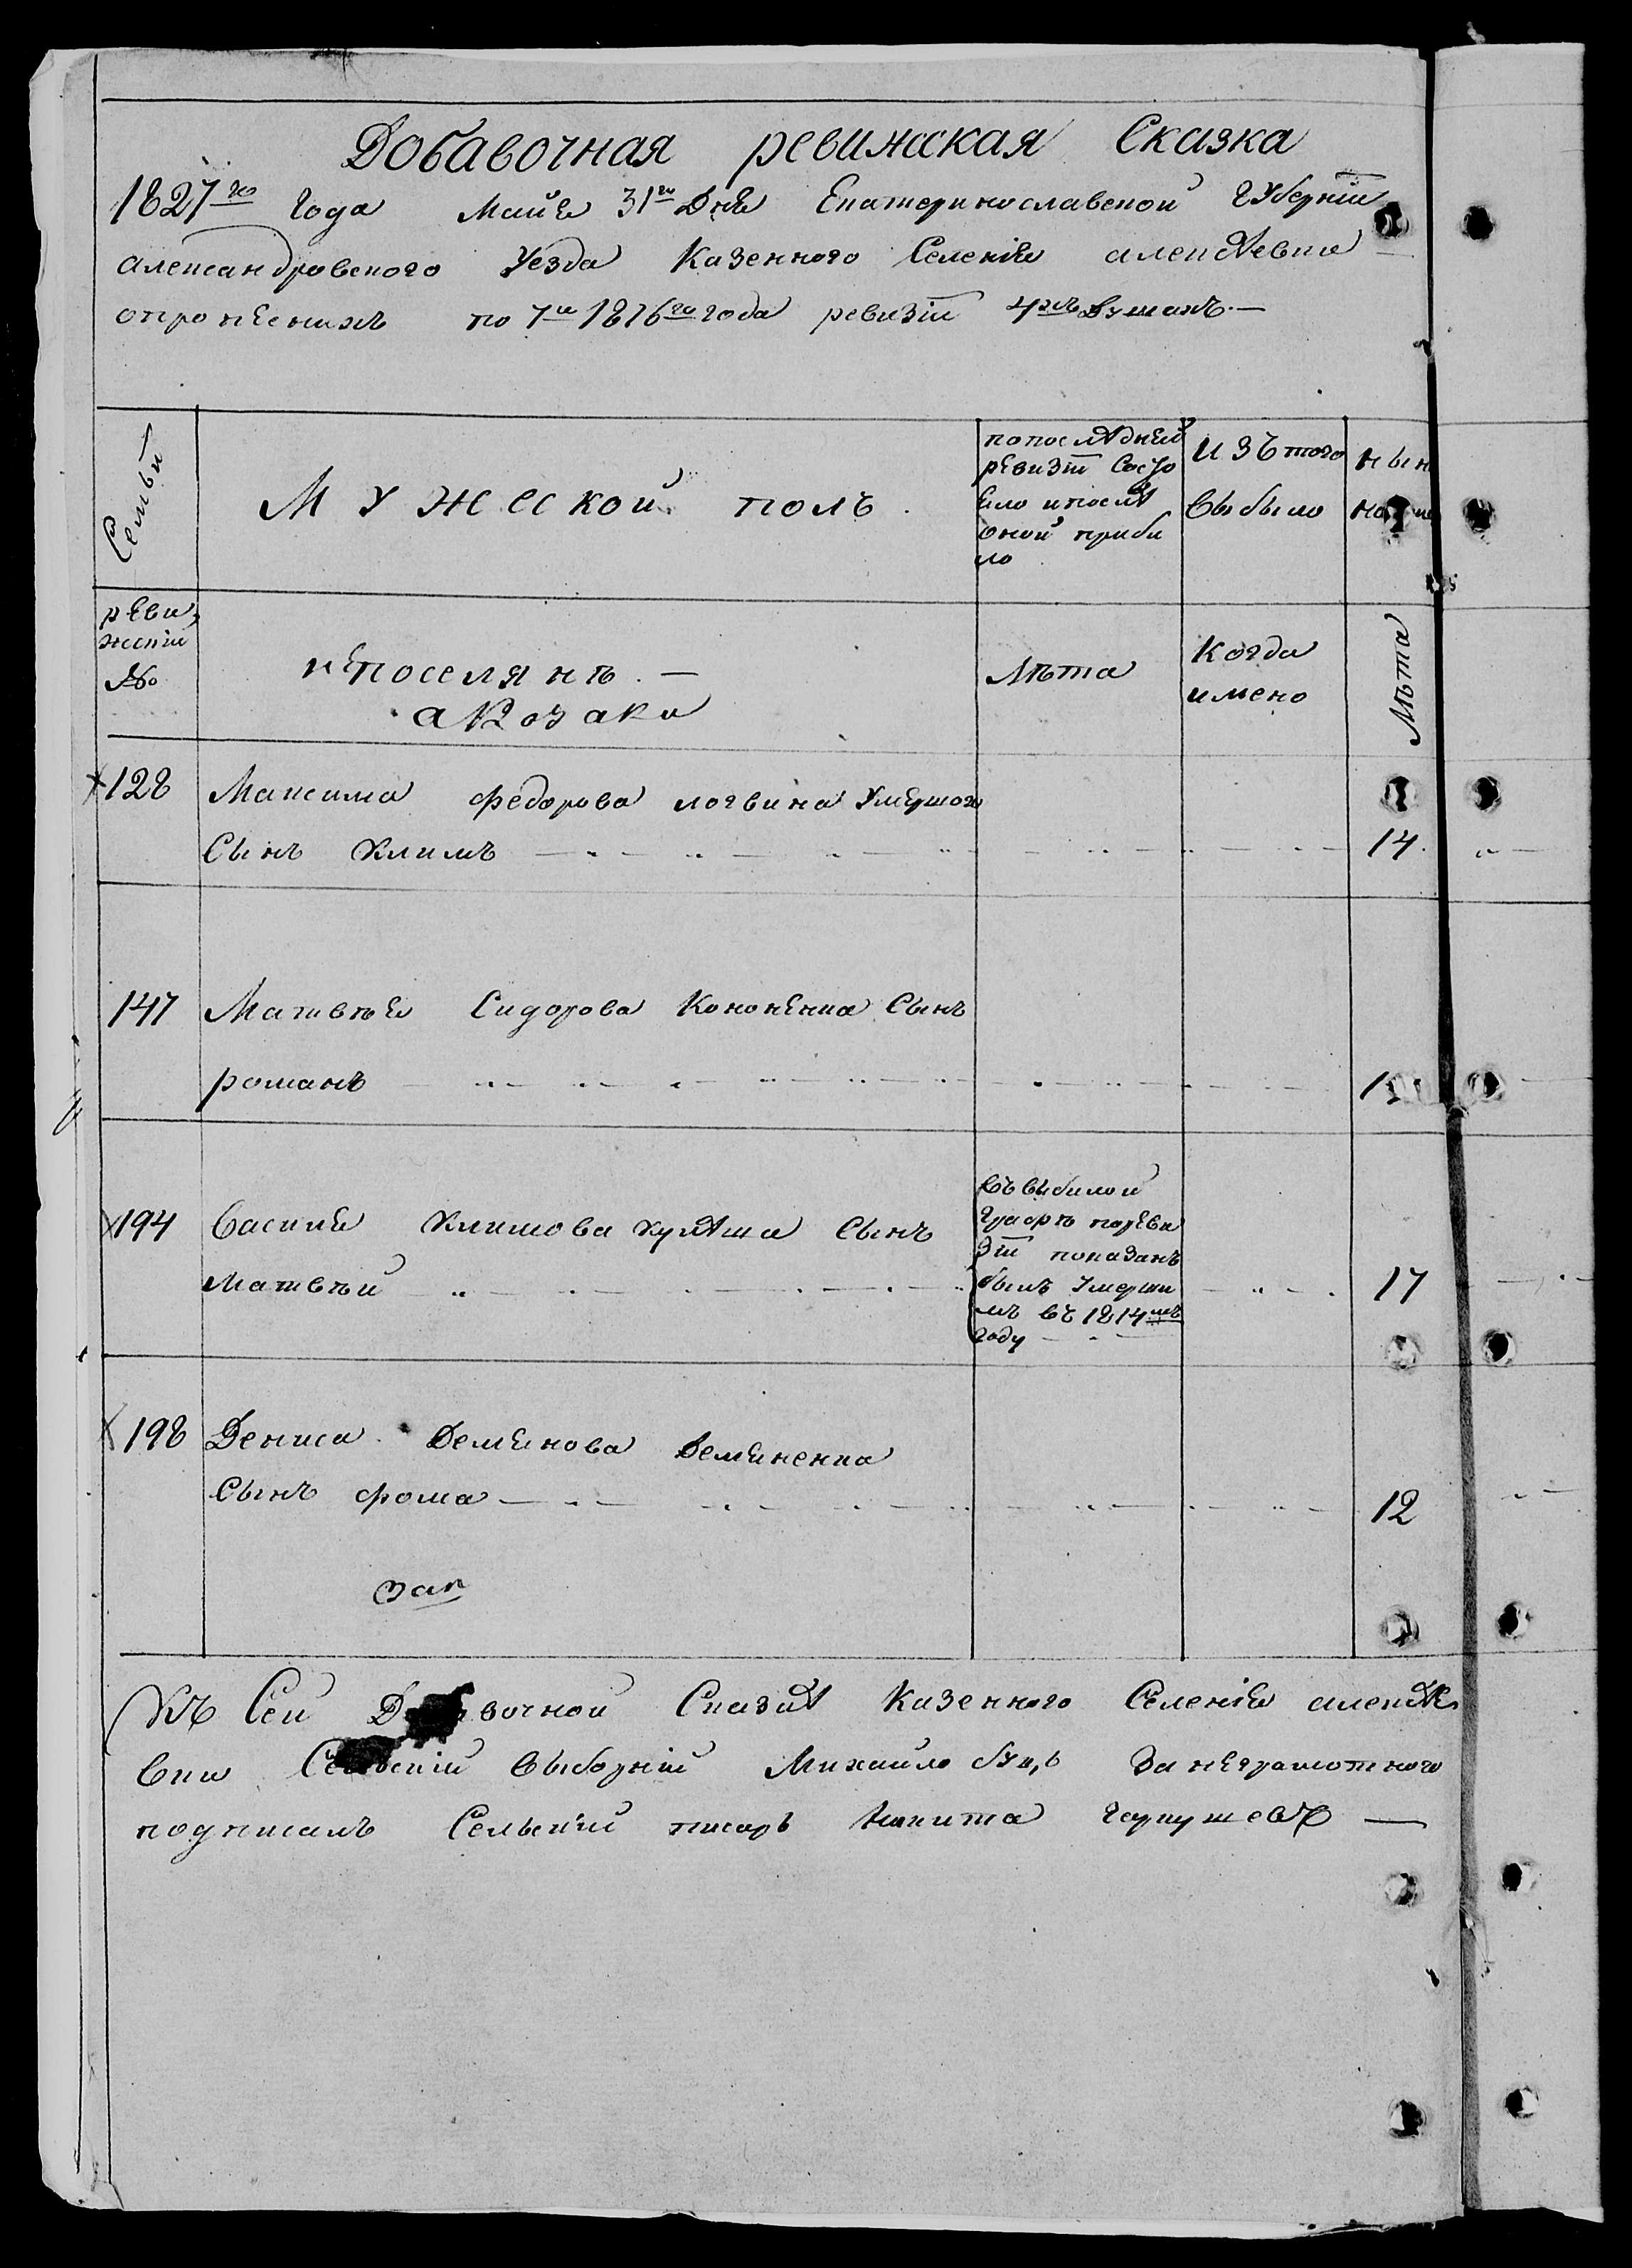 Добавочная ревижская Сказка
1827го года Майя 31го Дня Екатеринославской Губерніи
александровского Уезда Казенного Селенія алексѣевки
опропесних по 7й 1816го года ревизіи 4хъ душахъ. —
Семьи
Мужеской полъ.
попослѣдней
ревизіи Состо
яло ипослѣ
оной прибы
ло
изътого
выбыло
нын
на
реви,
жскіи
№
ипоселянъ. —
акозаки
лѣта
когда
имено
лѣта
128 Максима Федорова логвина Умершого
Сынъ Климъ 14
147 Матвѣя Сидорова Кононенка Сынъ
романъ
194 василя Климова Сынъ
Матвѣй 17
въ выбылой
графѣ пореви
зіи показанъ
былъ Умерши
мъ въ 1814мъ
году
198 Дениса Деменова Деменекка
Сынъ фома 12
Къ Сеи Сказкѣ Казенного Селенія алексѣе
вки выборній Михайло За неграмотного
подписалъ Сельскій писарь Никита